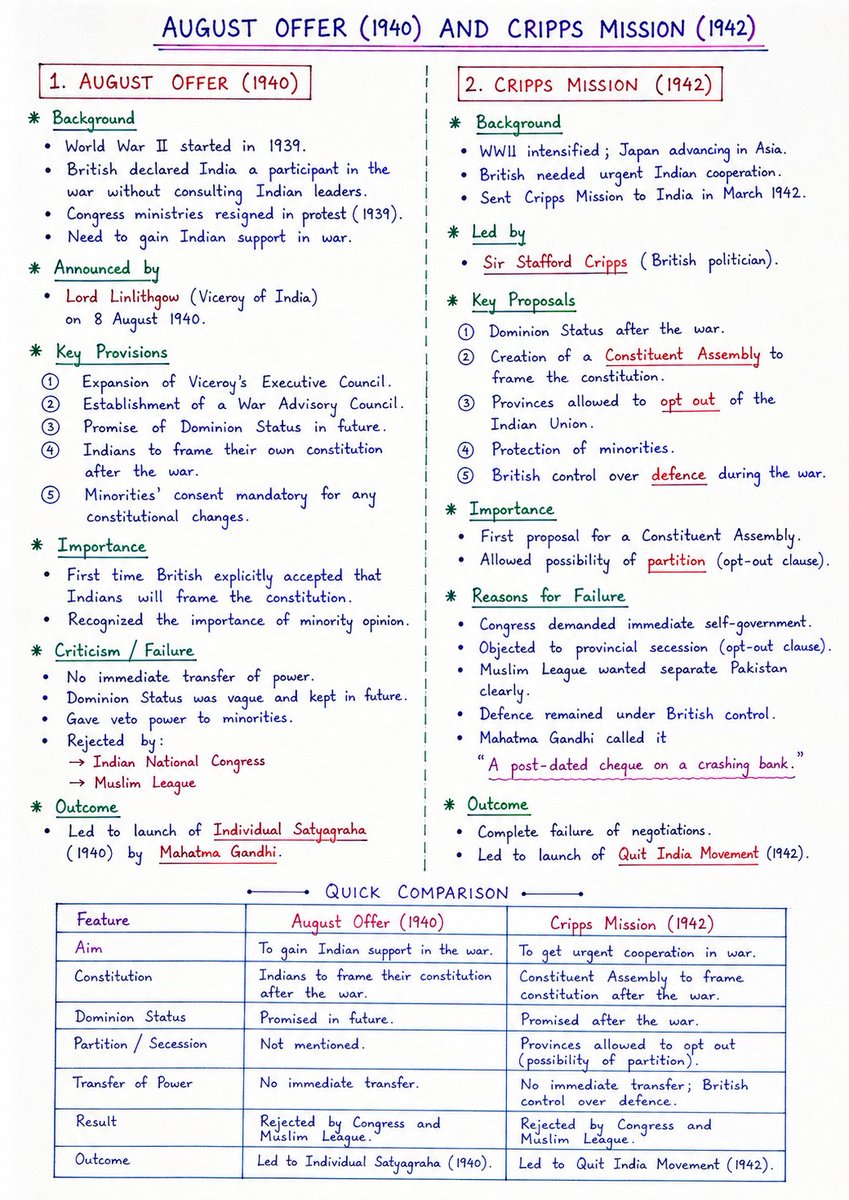 AUGUST OFFER (1940) AND CRIPPS MISSION (1942)
1. AUGUST OFFER (1940)
* Background
• World War II started in 1939.
• British declared India a participant in the
war without consulting Indian leaders.
• Congress ministries resigned in protest (1939).
• Need to gain Indian support in war.
* Announced by
• Lord Linlithgow (Viceroy of India)
on 8 August 1940.
* Key Provisions
① Expansion of Viceroy's Executive Council.
② Establishment of a War Advisory Council.
③ Promise of Dominion Status in future.
④ Indians to frame their own constitution
after the war.
⑤ Minorities' consent mandatory for any
constitutional changes.
* Importance
• First time British explicitly accepted that
Indians will frame the constitution.
• Recognized the importance of minority opinion.
* Criticism / Failure
• No immediate transfer of power.
• Dominion Status was vague and kept in future.
• Gave veto power to minorities.
• Rejected by:
→ Indian National Congress
→ Muslim League
* Outcome
• Led to launch of Individual Satyagraha
(1940) by Mahatma Gandhi.
2. CRIPPS MISSION (1942)
* Background
• WWII intensified; Japan advancing in Asia.
• British needed urgent Indian cooperation.
• Sent Cripps Mission to India in March 1942.
* Led by
• Sir Stafford Cripps (British politician).
* Key Proposals
① Dominion Status after the war.
② Creation of a Constituent Assembly to
frame the constitution.
③ Provinces allowed to opt out of the
Indian Union.
④ Protection of minorities.
⑤ British control over defence during the war.
* Importance
• First proposal for a Constituent Assembly.
• Allowed possibility of partition (opt-out clause).
* Reasons for Failure
• Congress demanded immediate self-government.
• Objected to provincial secession (opt-out clause).
• Muslim League wanted separate Pakistan
clearly.
• Defence remained under British control.
• Mahatma Gandhi called it
"A post-dated cheque on a crashing bank."
* Outcome
• Complete failure of negotiations.
• Led to launch of Quit India Movement (1942).
QUICK COMPARISON
Feature August Offer (1940) Cripps Mission (1942)
Aim To gain Indian support in the war. To get urgent cooperation in war.
Constitution Indians to frame their constitution Constituent Assembly to frame
after the war. constitution after the war.
Dominion Status Promised in future. Promised after the war.
Partition / Secession Not mentioned. Provinces allowed to opt out
(possibility of partition).
Transfer of Power No immediate transfer. No immediate transfer; British
control over defence.
Result Rejected by Congress and Rejected by Congress and
Muslim League. Muslim League.
Outcome Led to Individual Satyagraha (1940). Led to Quit India Movement (1942).